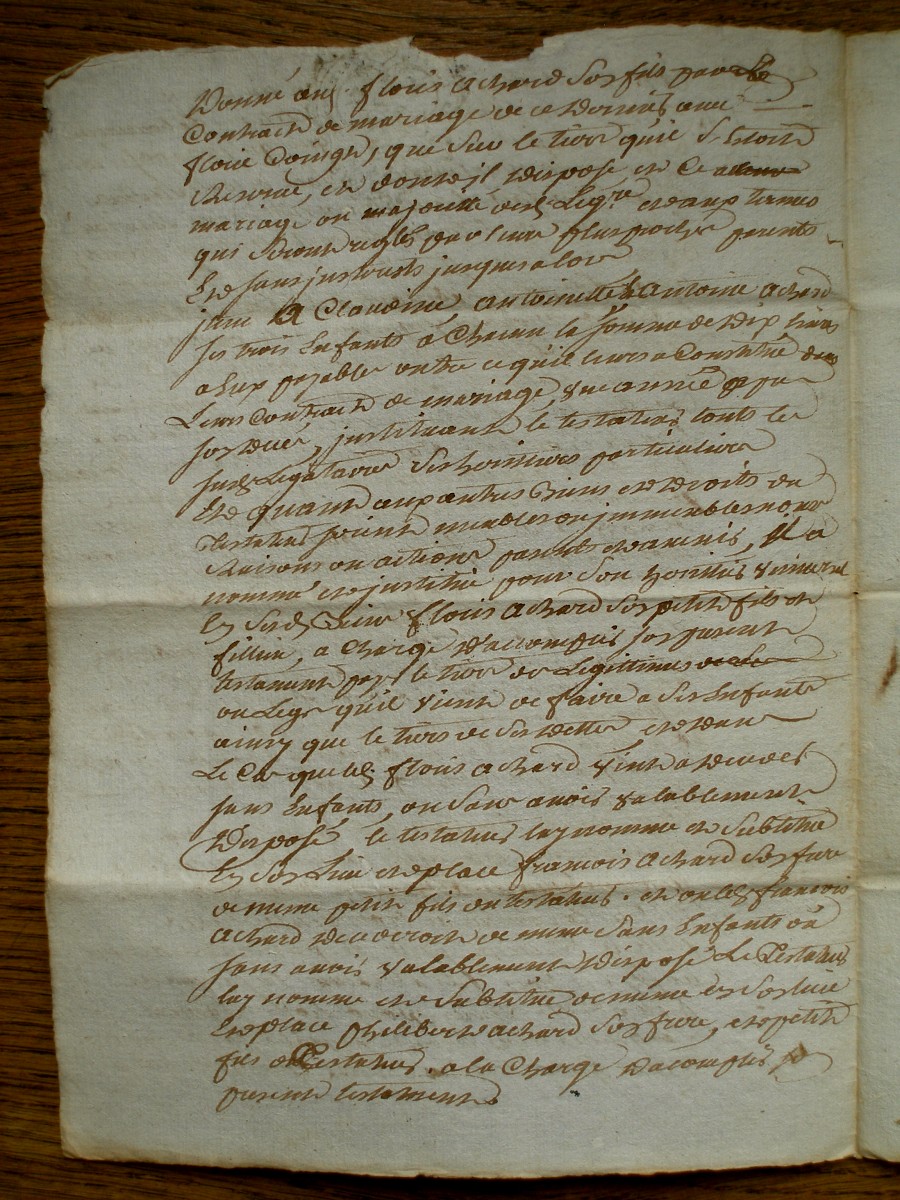 Donné aud. Floris Achard son fils par le
Contract de mariage de ce dernier avec
florie Coingt, que sur le tiers qu'il s'etoit
Reservé, et dont il dispose et ce
mariage ou majorité des. Légre. et aux termes
qui seront reglés par leurs plus proches parents
Et sans interests jusques alors
jtem à Claudine, Antoinette & Antoine Achard
ses trois Enfants à Chacun la somme de dix livres
a Eux payable outre ce qu'il leurs a Constitué dans
Leurs Contracts de mariage, une année apres
son decé, jnstituant le testateur touts les
susd. Legataires ses heritiers particuliers
Et quant aux autres Biens et droits du
testateur soient meubles ou jmmeubles noms
Raisons ou actions presents et avenir, Il a
nommé et jnstitué pour son heritier universel
Floris Achard son petit fils et
fillieu, a Charge d'accomplir son present
testament payer le tiers des Legittimes
ou Legs qu'il vient de faire a ses Enfants
ainsy que le tiers de ses dettes et dans
Le Cas que led. Floris Achard vint a deceder
sans Enfants, ou sans avoir valablement
Disposé le testateur luy nomme et substitue
En son lieu et place françois Achard son frere
de meme petit fils du testateur. et ou led. françois
Achard decederoit de meme sans Enfants ou
sans avoir valablement disposé Le Testateur
luy nomme et substitue de meme En son lieu
et place Philibert Achard son frere, et petit
fils du Testateur. a la Charge d'acomplir le
present testament.